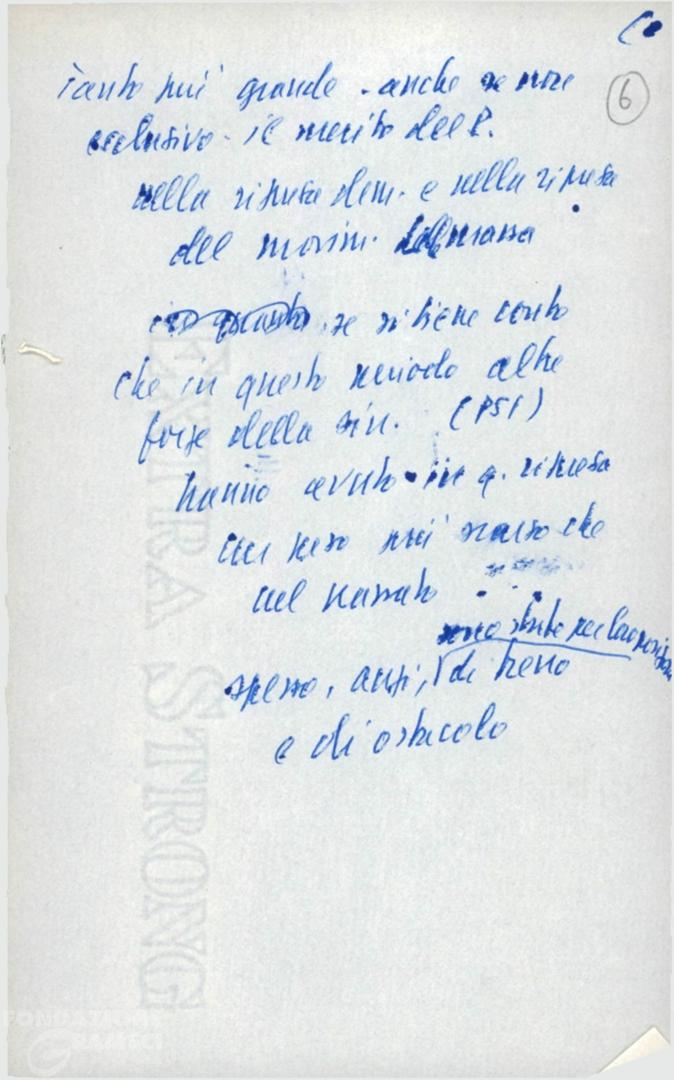 6
Tanto più grande - anche se non
esclusivo - il merito del P.
nella ripresa dem. e nella ripresa
del movim. di massa
se si tiene conto
che in questo periodo altre
forze della sin. (PSI)
hanno avuto in q. ripresa
un peso più scarso che
nel passato
sono state per loro posizioni
spesso, anzi, di freno
e di ostacolo
EXTRA STRONG
FONDAZIONE
GRAMSCI